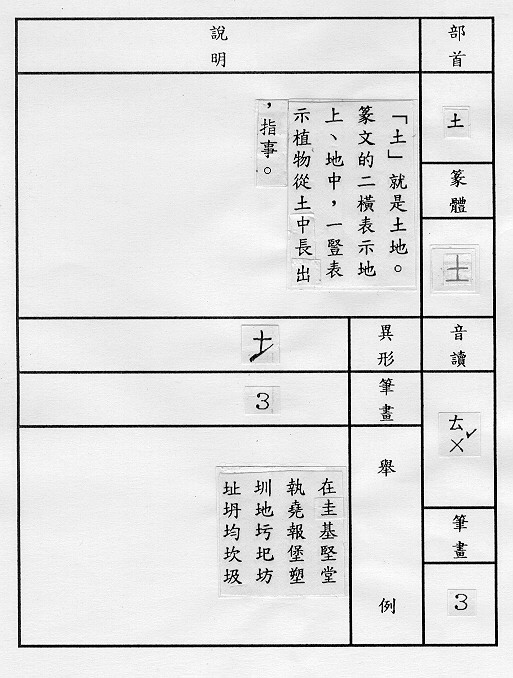 部首
土
篆體
土
音讀
ㄊㄨˇ
筆畫
3
說明
「土」就是土地。
篆文的二橫表示地
上、地中，一豎表
示植物從土中長出
，指事。
異形
筆畫
3
舉例
在圭基堅堂
執堯報堡塑
圳地圬圯坊
址坍均坎圾